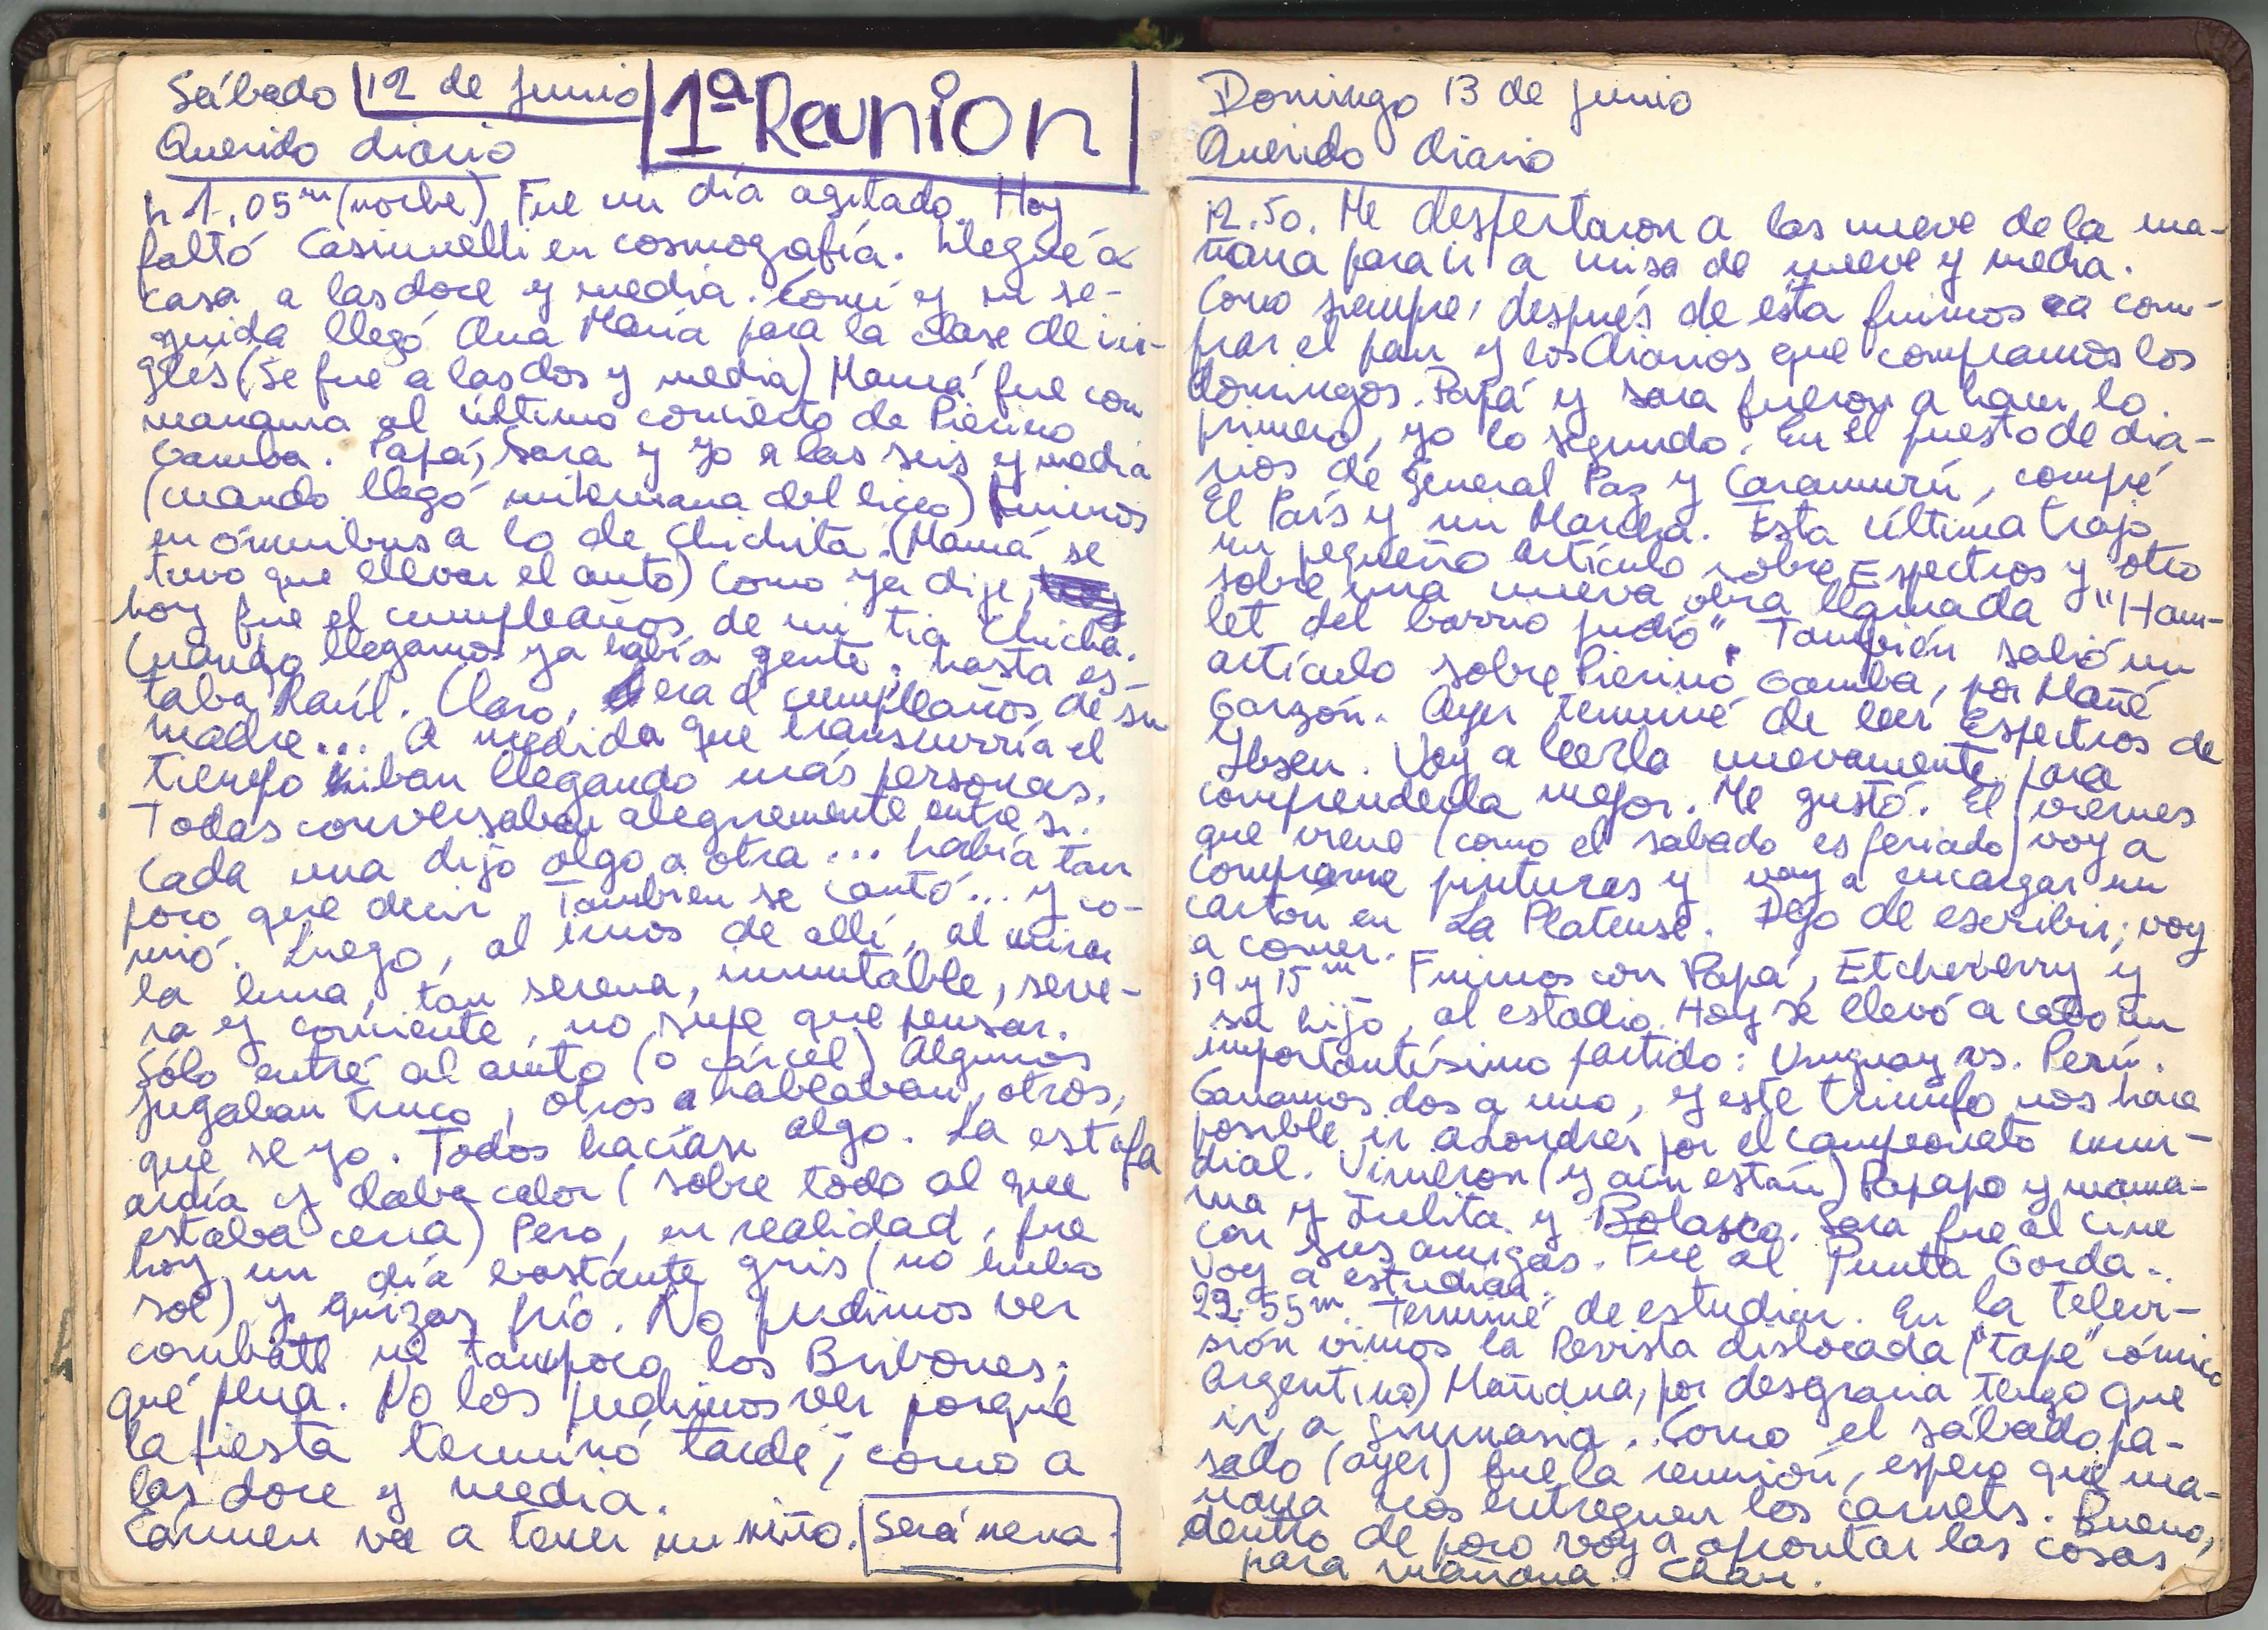 Sábado 12 de junio
1ª Reunion
Querido diario
h 1,05m (noche) Fue un día agitado. Hoy
faltó Casinnelli en cosmografía. Llegué a
casa a las doce y media. Comí y en se-
guida llegó Ana María para la clase de in-
glés (Se fue a las dos y media) Mamá fue con
mamama al último concierto de Pierino
Gamba. Papá, Sara y yo a las seis y media
(cuando llegó mi hermana del liceo) Fuimos
en ómnibus a lo de Chichita. (Mamá se
tuvo que llevar el auto) Como ya dije,
hoy fue el cumpleaños de mi tía Chicha.
Cuando llegamos ya había gente; hasta es-
taba Raúl. Claro, era el cumpleaños de su
madre... A medida que transcurría el
tiempo iban llegando más personas.
Todas conversaban alegremente entre sí.
Cada una dijo algo a otra... había tan
poco que decir. Tambien se cantó... y co-
mió. Luego, al irnos de allí, al mirar
la luna, tan serena, inmutable, seve-
ra y corriente, no supe que pensar.
Sólo entré al auto (o cárcel) Algunos
jugaban truco, otros hablaban, otros,
que se yo. Todos hacían algo. La estufa
ardía y daba calor (sobre todo al que
estaba cerca) Pero, en realidad, fue
hoy un día bastante gris (no hubo
sol) y quizas frío. No pudimos ver
combate ni tampoco los Bribones;
qué pena. No los pudimos ver porque
la fiesta terminó tarde; como a
las doce y media.
Cármen va a tener un niño. Será nena.
Domingo 13 de junio
Querido diario
12.50. Me despertaron a las nueve de la ma-
ñana para ir a misa de nueve y media.
Como siempre, después de ésta fuimos a com-
prar el pan y los diarios que compramos los
domingos. Papá y Sara fueron a hacer lo
primero, yo lo segundo. En el puesto de dia-
rios de General Paz y Caramurú, compré
El País y mi Marcha. Esta última trajo
un pequeño artículo sobre Espectros y otro
sobre una nueva obra llamada "Ham-
let del barrio judío". También salió un
artículo sobre Pierino Gamba, por Mañé
Garzón. Ayer terminé de leer Espectros de
Ibsen. Voy a leerla nuevamente para
comprenderla mejor. Me gustó. El viernes
que viene (como el sabado es feriado) voy a
comprarme pinturas y voy a encargar un
cartón en La Platense. Dejo de escribir; voy
a comer.
19 y 15m Fuimos con Papá, Etcheverry y
su hijo, al estadio. Hoy se llevó a cabo un
importantísimo partido: Uruguay vs. Perú.
Ganamos dos a uno, y este triunfo nos hace
posible ir a Londres por el campeonato mun-
dial. Vinieron (y aún están) Papapo y mama-
ma y Julita y Bolasco. Sara fue al cine
con sus amigas. Fue al Punta Gorda.
Voy a estudiar.
22.55m. Terminé de estudiar. En la televi-
sión vimos la Revista dislocada ("tape" cómico
Argentino) Mañana, por desgracia tengo que
ir a gimnasia. Como el sábado pa-
sado (ayer) fue la reunión, espero que ma-
ñana nos entreguen los carnets. Bueno,
dentro de poco voy a aprontar las cosas
para mañana. Chau.